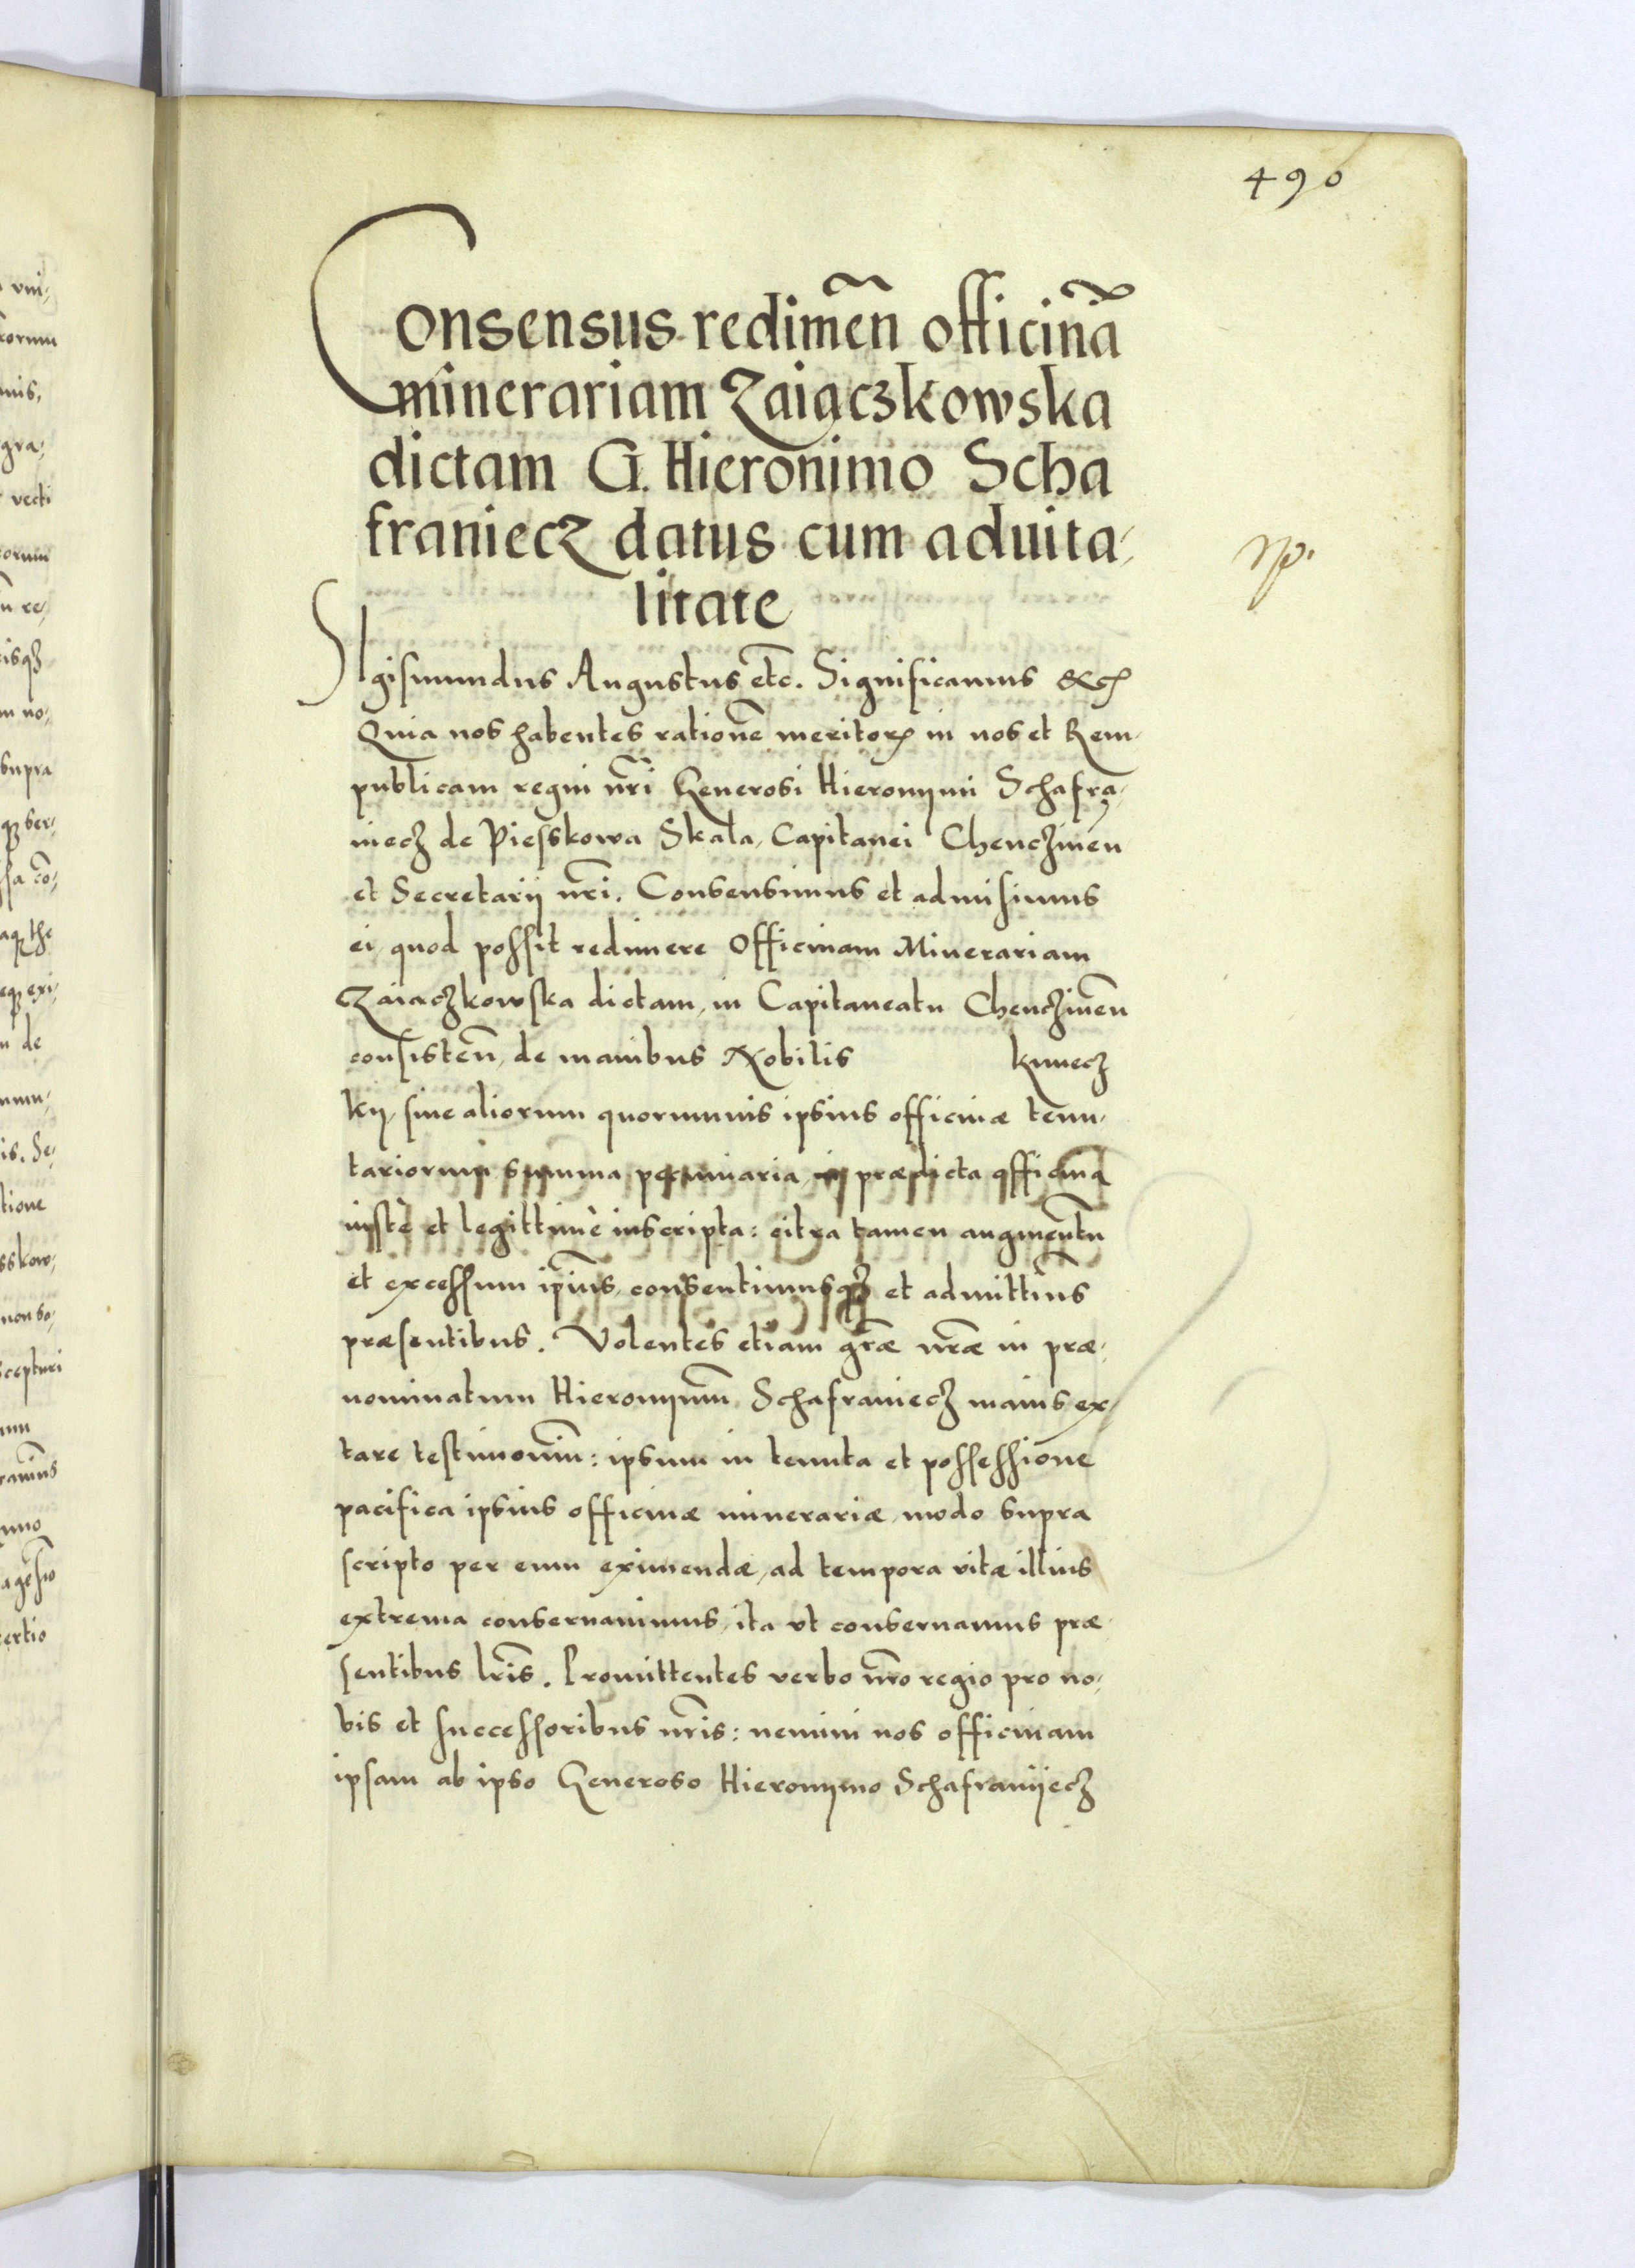 490
Consensus redimen̄ officinā
minerariam Zaiączkowska
dictam G. Hieronimo Scha
franiecz datus cum aduita-
litate
SIgismundus Augustus etc. Significamus &c
Quia nos habentes rationē meritorꝝ in nos et Rem-
publicam regni nr̄i Generosi Hieronymi Schafra-
niecz de Piesskowa Skala, Capitanei Chenczinen̄
et Secretarij nr̄i. Consensimus et admisimus
ei, quod possit redimere Officinam Minerariam
Zaiaczkowska dictam, in Capitaneatu Chenczinen̄
consisten̄, de manibus Nobilis Kuniecz
kij, siue aliorum quorumuis ipsius officinæ tenu-
tariorum summa pecuniaria, in prædicta officina
iustè et legittimè inscripta: citra tamen augmentū
et excessum ip̄ius, consentimusqꝫ et admittim̄s
præsentibus. Volentes etiam gr̄æ nr̄æ in præ-
nominatum Hieronymū Schafraniecz maius ex-
tare testimoniū: ipsum in tenuta et possessione
pacifica ipsius officinæ minerariæ, modo supra
scripto per eum eximendæ, ad tempora vitæ illius
extrema conseruauimus, ita vt conseruamus præ-
sentibus lr̄is. Promittentes verbo nr̄o regio pro no-
bis et successoribus nr̄is: nemini nos officinam
ipsam ab ipso Generoso Hieronymo Schafranijecz